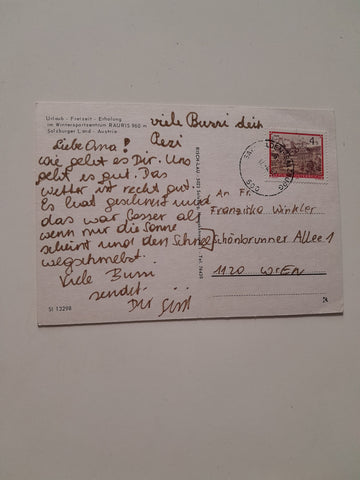 Urlaub - Freizeit - Erholung
im Wintersportzentrum RAURIS 960 m
Salzburger Land - Austria
viele Bussi dein
Resi
Liebe Oma!
wie geht es Dir. Uns
geht es gut. Das
Wetter ist recht gut.
Es hat geschneit und
das war besser als
wenn nur die Sonne
scheint und den Schnee
wegschmelzt.
Viele Bussi
sendet
Dir Sissi
SI 13298
4
An Fr.
Franziska Winkler
Schönbrunner Allee 1
1120 WIEN